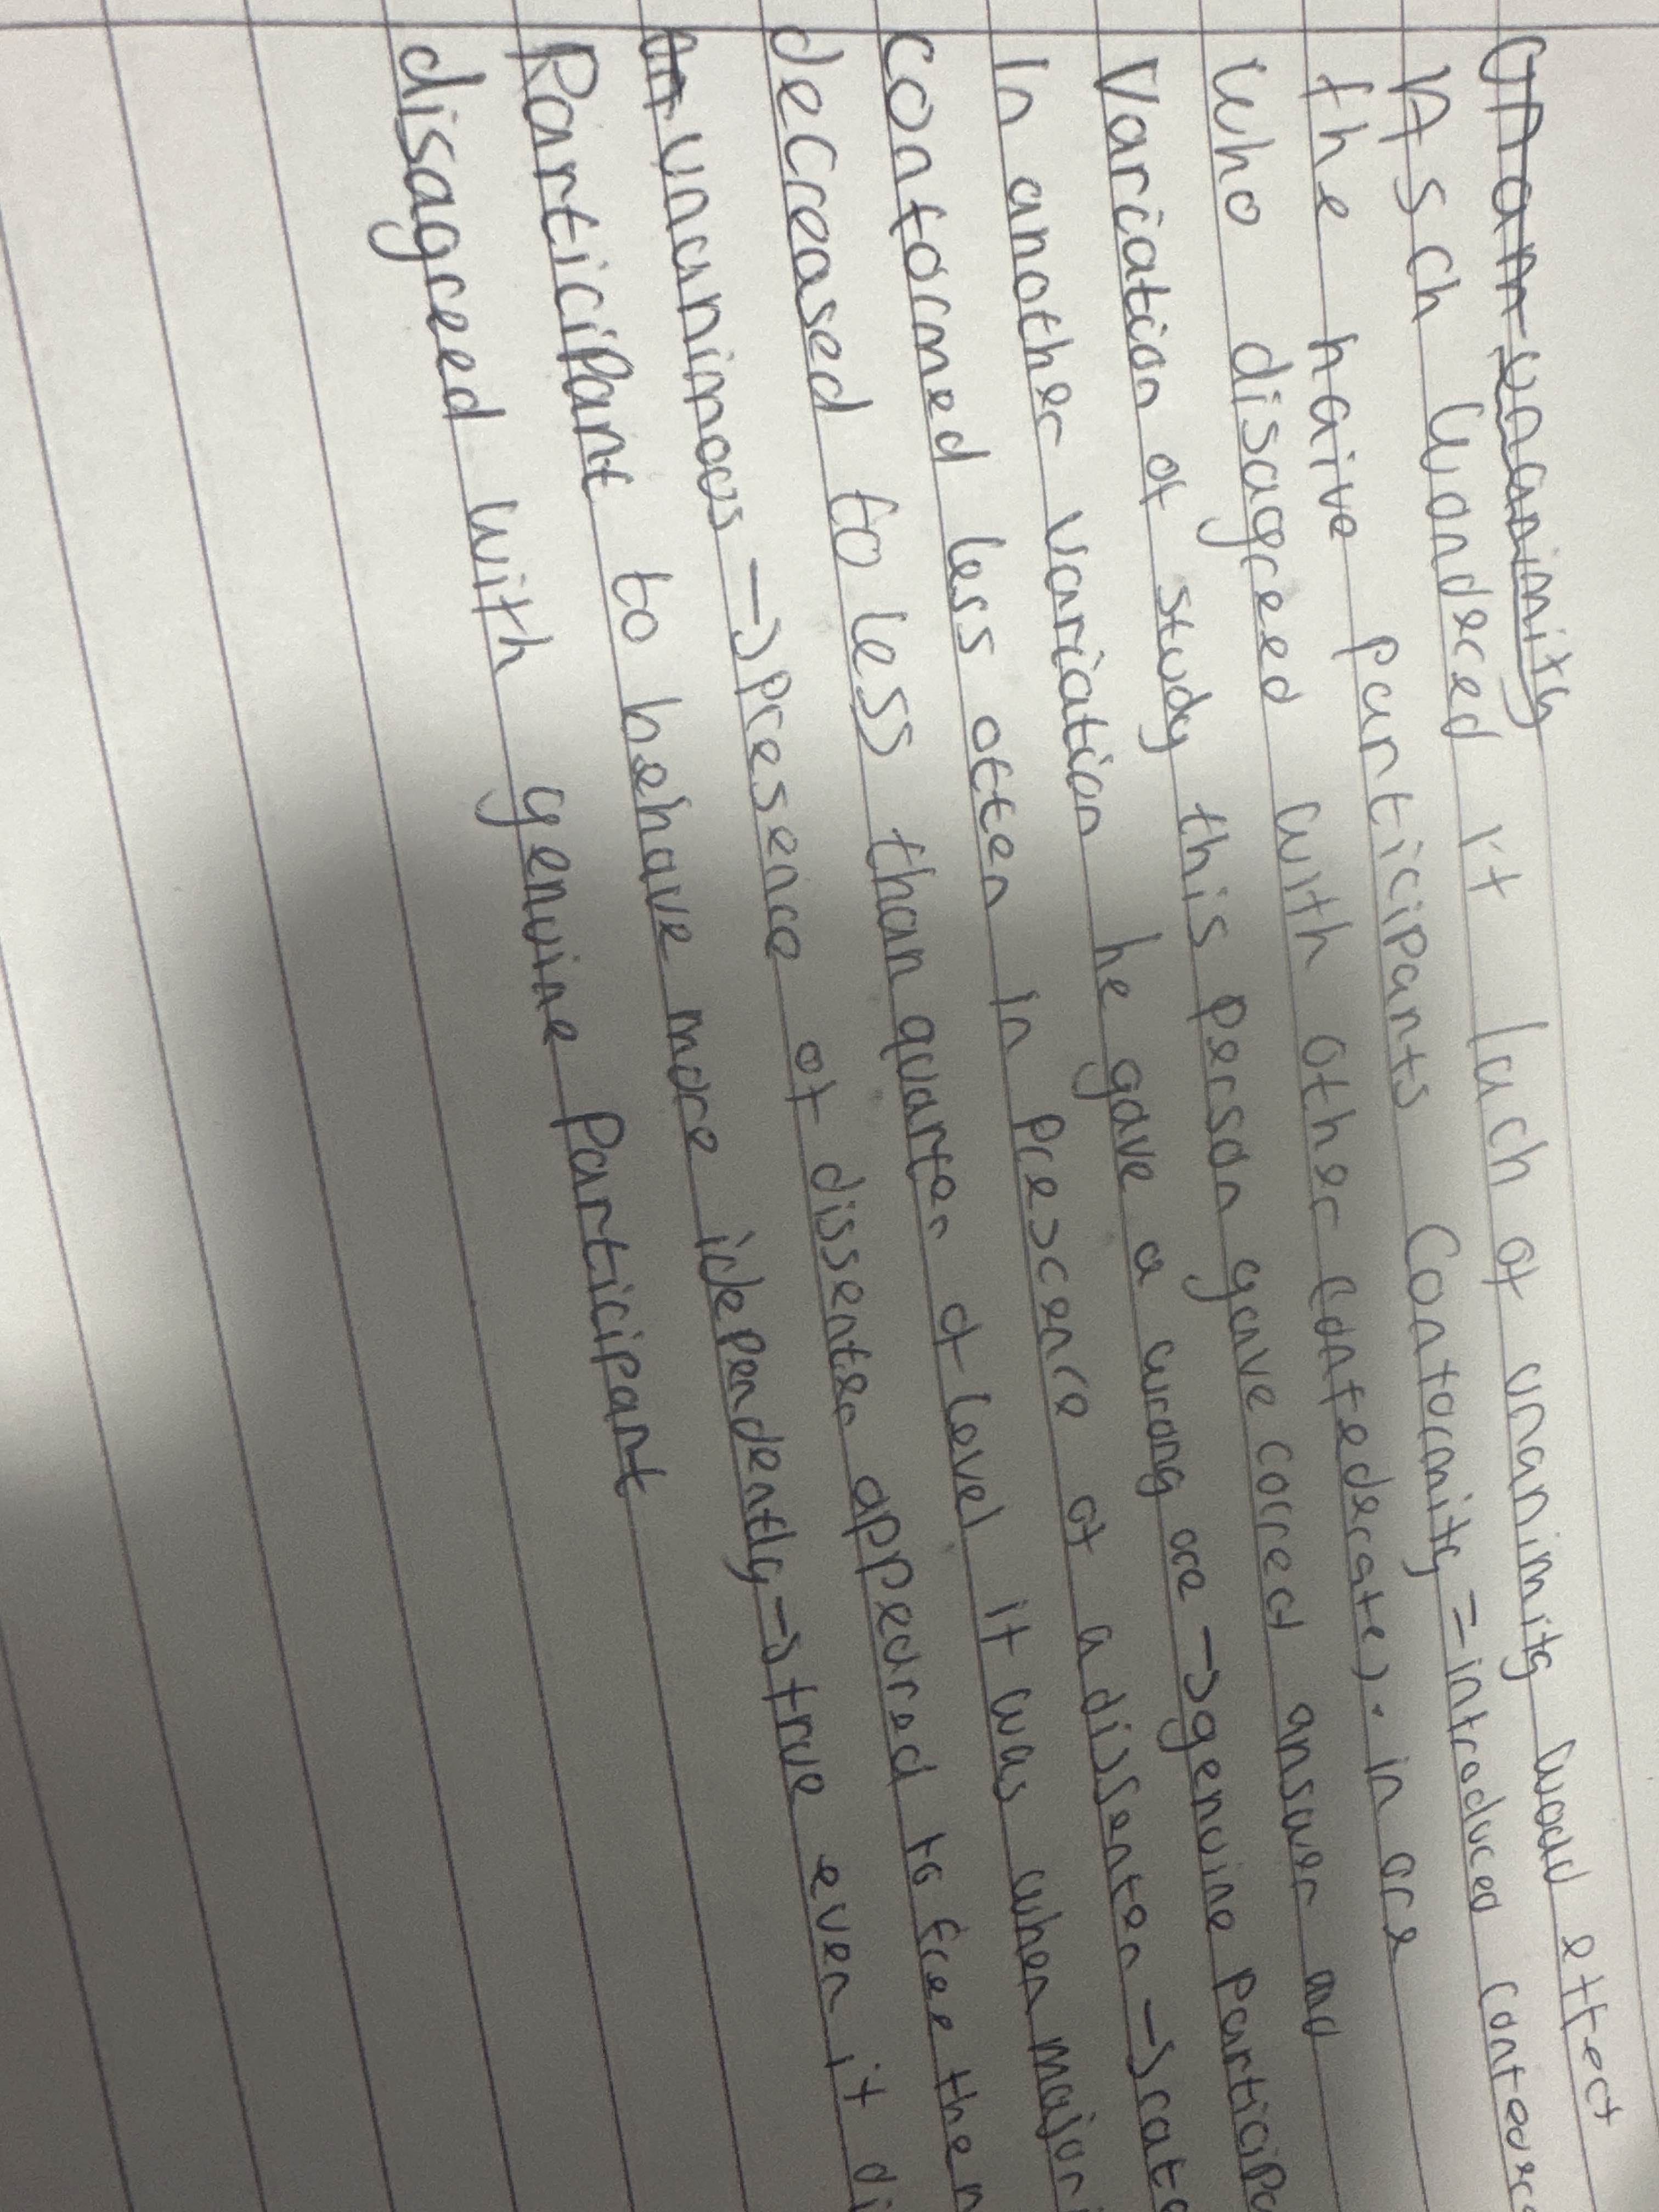 unanimity
Asch wondered if lach of unanimity woud effect
the naive participants Conformity = introduced
who disagreed with other confederates. in one
Variation of study this person gave correct answer and
In another variation he gave a wrong one → genuine
conformed less often in prescence of a dissenter →
decreased to less than quarter of level it was when
unanimous → presence of dissenter appeared to free the
Participant to behave more idependently → true even if
disagreed with genuine Participant